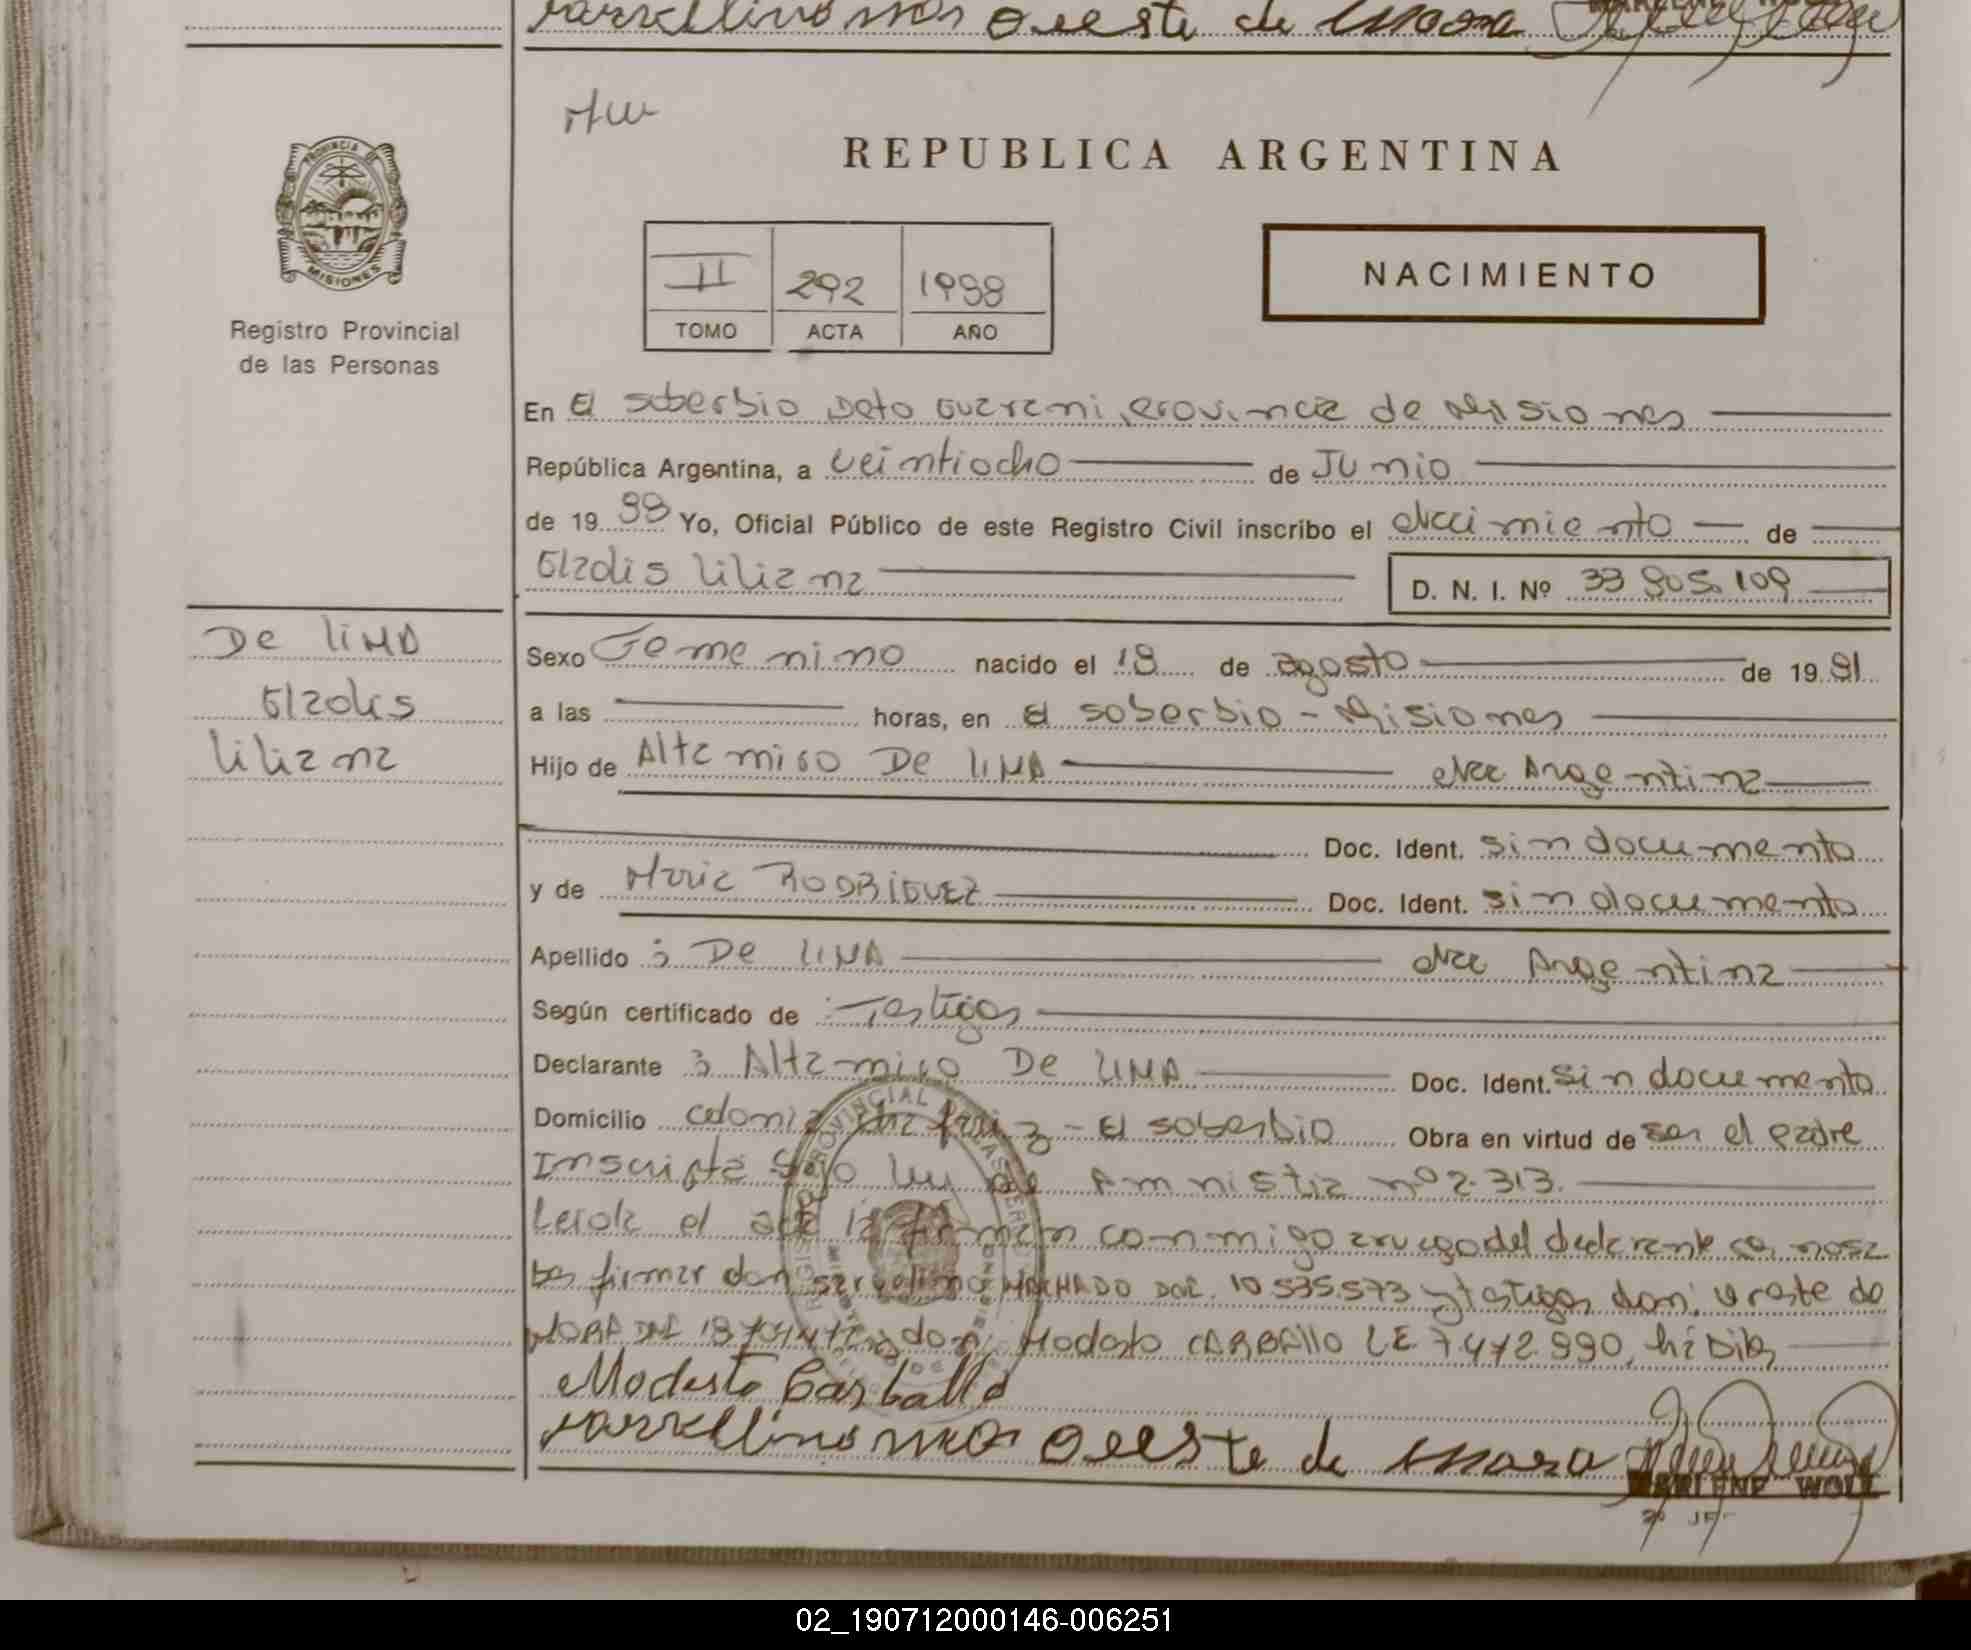 oeste de mora
REPUBLICA ARGENTINA
NACIMIENTO
PROVINCIA DE
MISIONES
Registro Provincial
de las Personas
II 292 1988
TOMO ACTA AÑO
En El soberbio Dpto Guarani, Provincia de Misiones
República Argentina, a veintiocho de Junio
de 19 88 Yo, Oficial Público de este Registro Civil inscribo el Nacimiento de
Gladis Liliana
D. N. I. Nº 33 905.109
De LIMA
Gladis
Liliana
Sexo Femenino nacido el 18 de agosto de 19 81
a las horas, en El soberbio - Misiones
Hijo de Altamiro De LIMA Nac Argentina
Doc. Ident. sin documento
y de Maria RODRIGUEZ Doc. Ident. sin documento
Apellido : De LIMA Nac Argentina
Según certificado de : Testigos
Declarante : Altamiro De LIMA Doc. Ident. sin documento
Domicilio colonia - El soberbio Obra en virtud de ser el padre
Inscripta Bajo Ley de Amnistia nº 2.313.
Leida el acta la firman conmigo a ruego del declarante por no sa
ber firmar don MACHADO DOC. 10.535.573 y testigos don: Oreste de
MORA DNI y don: Modesto CARBALLO LE 7.472.990, habiles
Modesto Carballo
oreste de mora
MARLENE WOLL
02_190712000146-006251